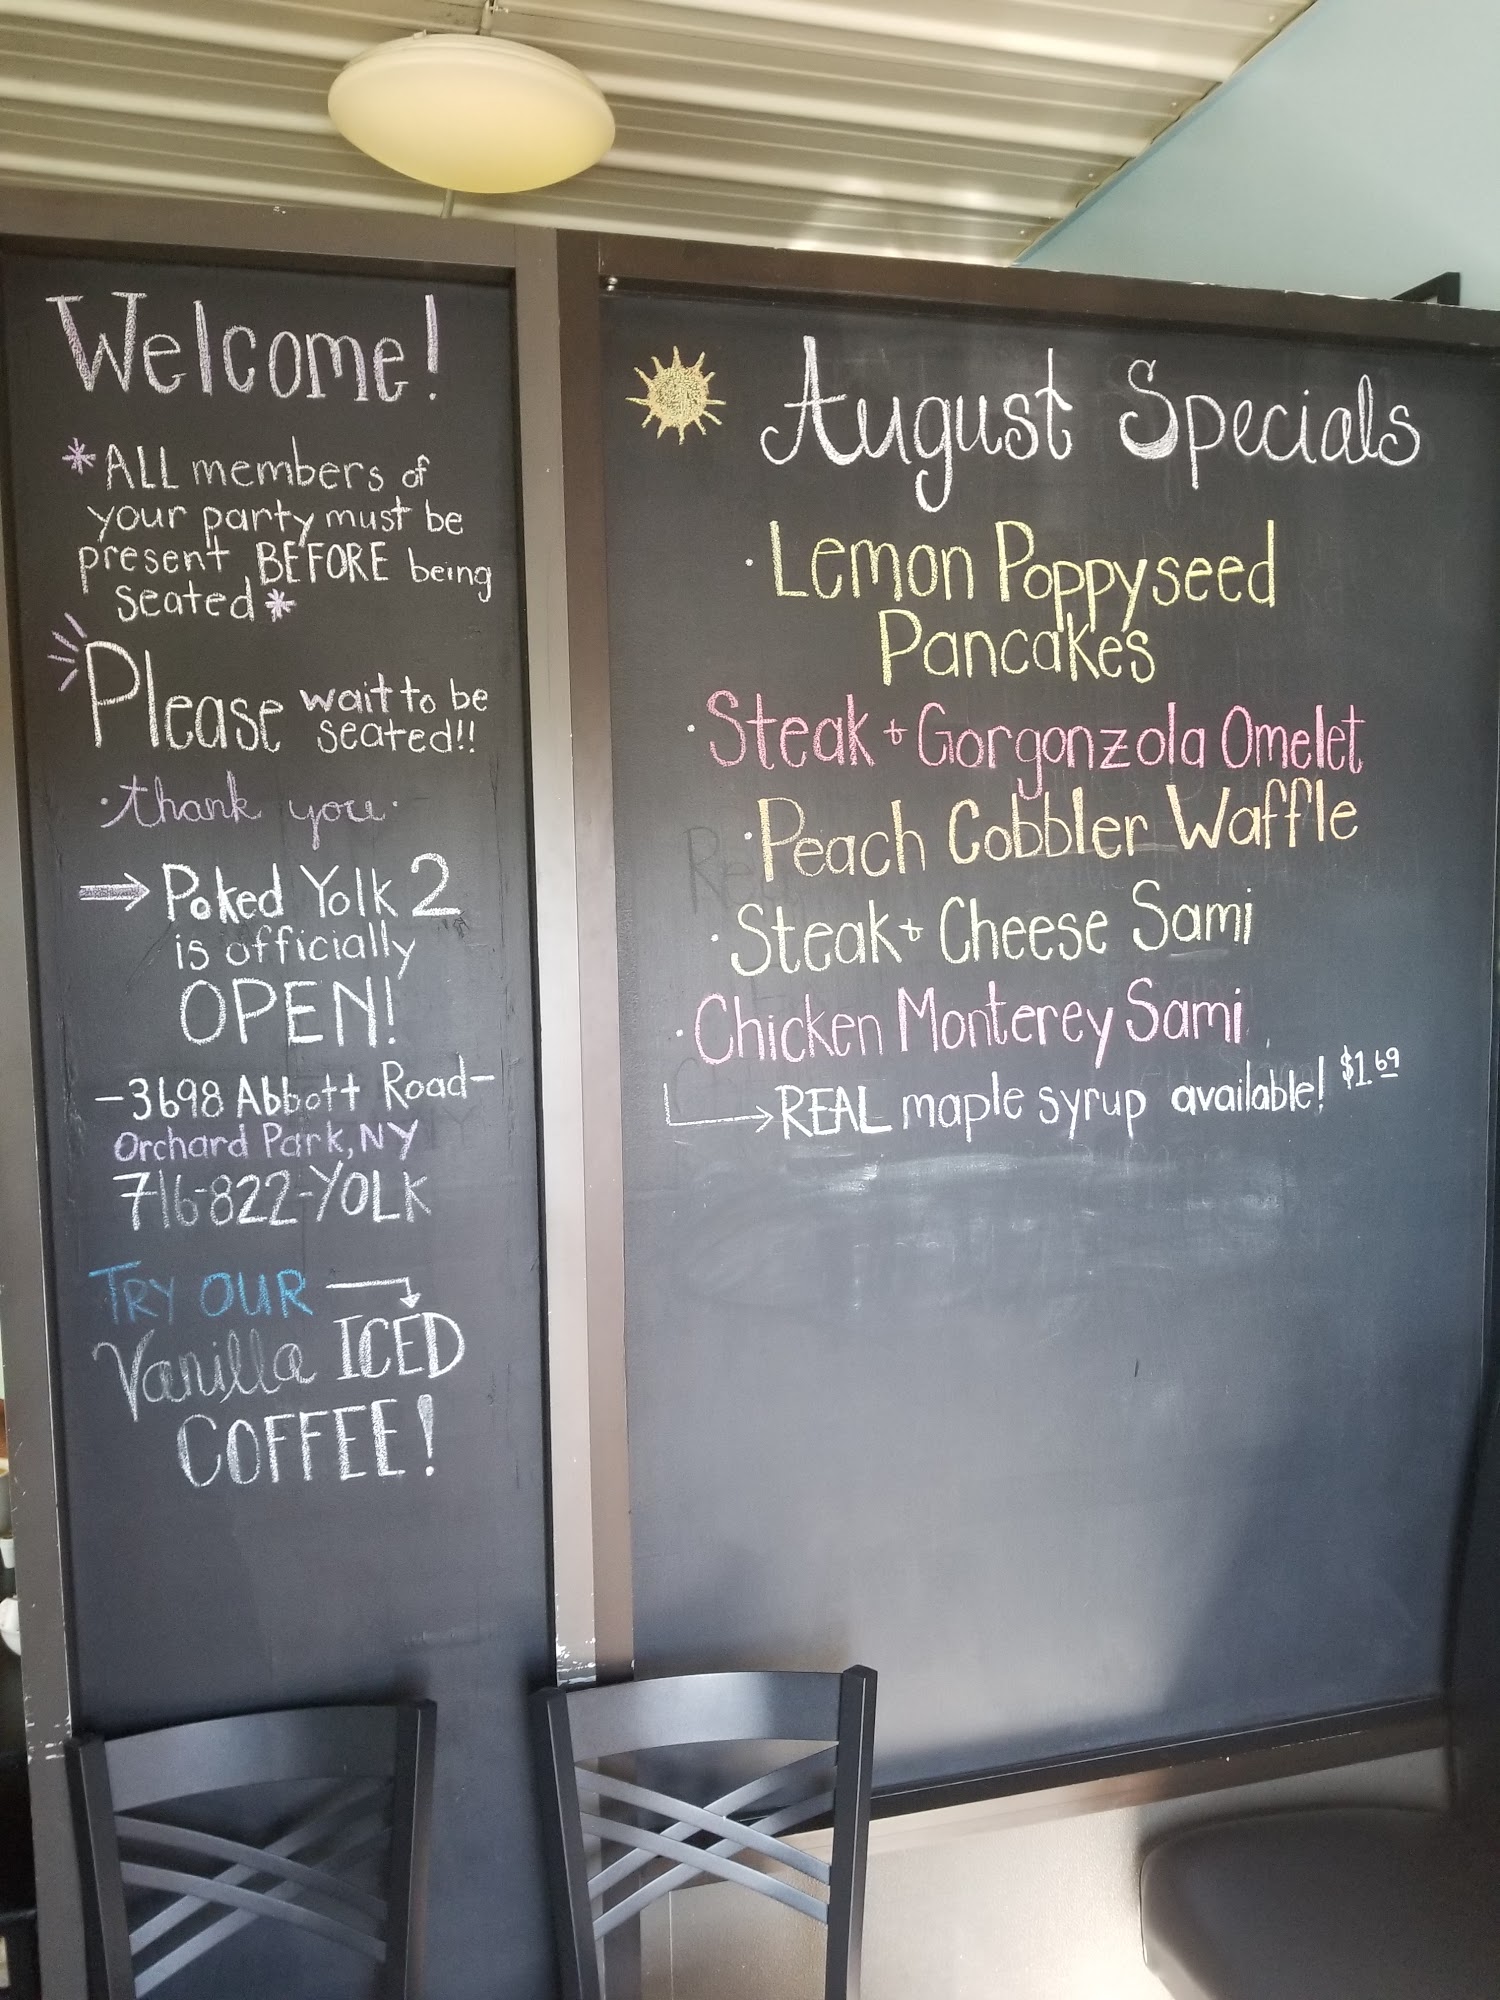 Welcome!
*ALL members of
your party must be
present BEFORE being
seated*
Please wait to be
seated!!
·thank you·
→ Poked Yolk 2
is officially
OPEN!
-3698 Abbott Road-
Orchard Park, NY
716-822-YOLK
TRY OUR
Vanilla ICED
COFFEE!
August Specials
· Lemon Poppyseed
Pancakes
· Steak + Gorgonzola Omelet
· Peach Cobbler Waffle
· Steak + Cheese Sami
· Chicken Monterey Sami
→ REAL maple syrup available! $1.69